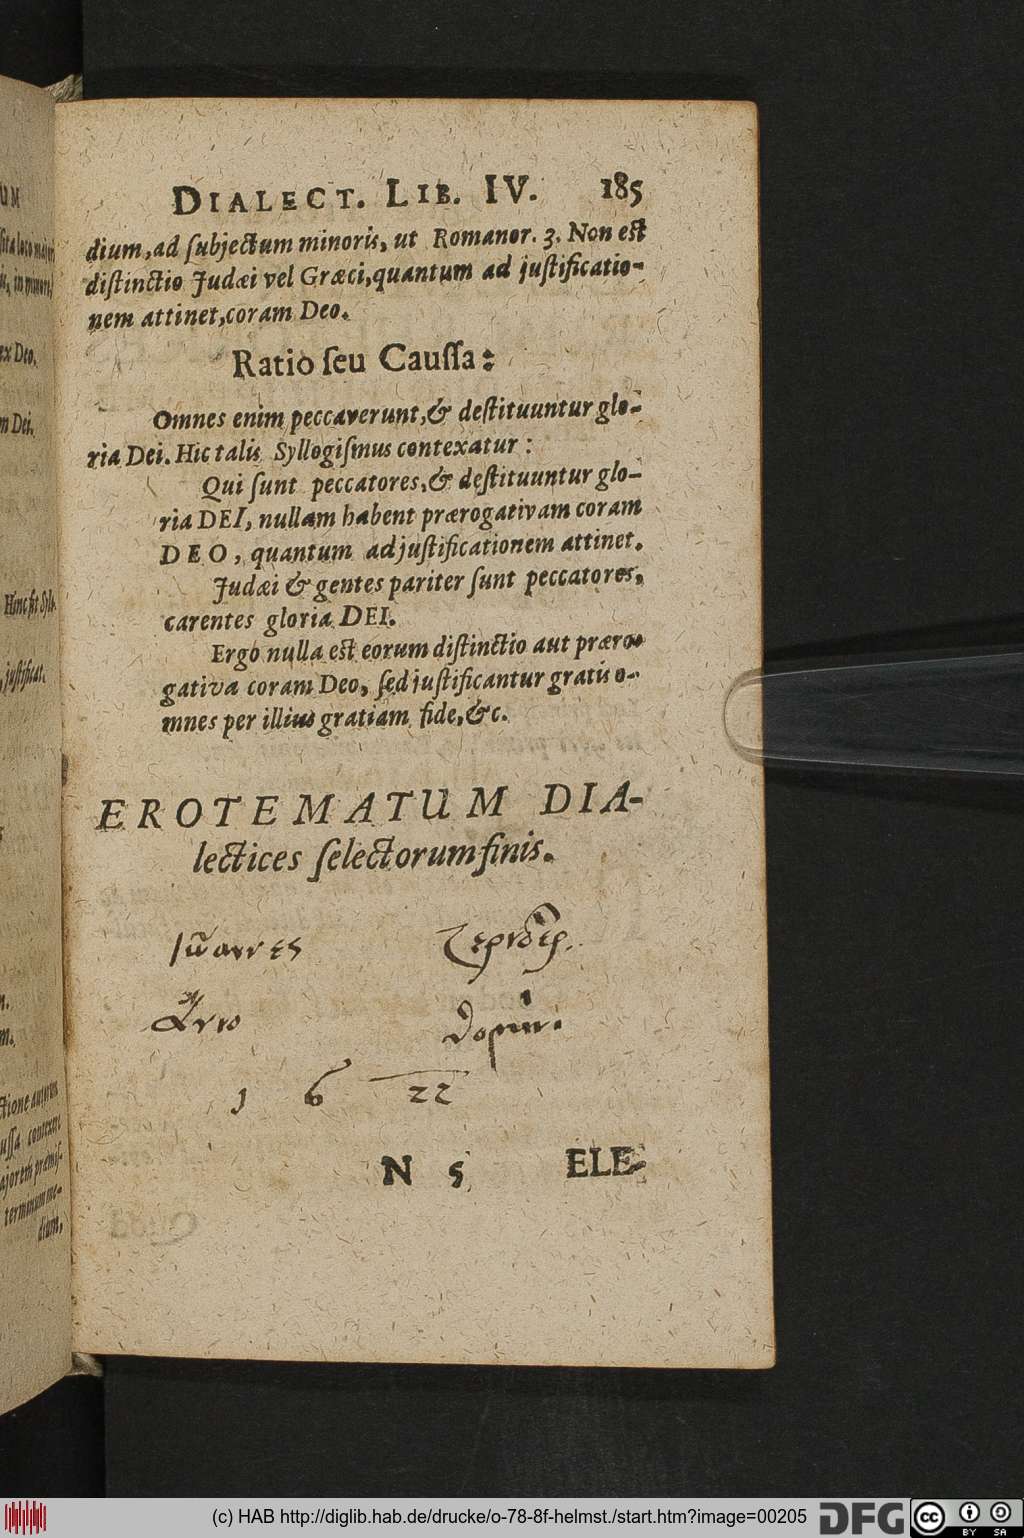 DIALECT. LIB. IV. 185
dium, ad ſubjectum minoris, ut Romanor. 3. Non est
diſtinctio Judæi vel Græci, quantum ad juſtificatio-
nem attinet, coram Deo.
Ratio ſeu Cauſſa:
Omnes enim peccaverunt, & deſtituuntur glo-
ria Dei. Hic talis Syllogiſmus contexatur:
Qui ſunt peccatores, & deſtituuntur glo-
ria DEI, nullam habent prærogativam coram
DEO, quantum ad juſtificationem attinet.
Judæi & gentes pariter ſunt peccatores,
carentes gloria DEI.
Ergo nulla est eorum diſtinctio aut præro-
gativa coram Deo, ſed juſtificantur gratis o-
mnes per illius gratiam fide, &c.
EROTEMATUM DIA-
lectices ſelectorum finis.
Anno
1622
N 5 ELE-
ex Deo.
m Dei.
Hinc fit Syll.
juſtificat.
dium,
(c) HAB http://diglib.hab.de/drucke/o-78-8f-helmst./start.htm?image=00205
DFG
cc
BY SA